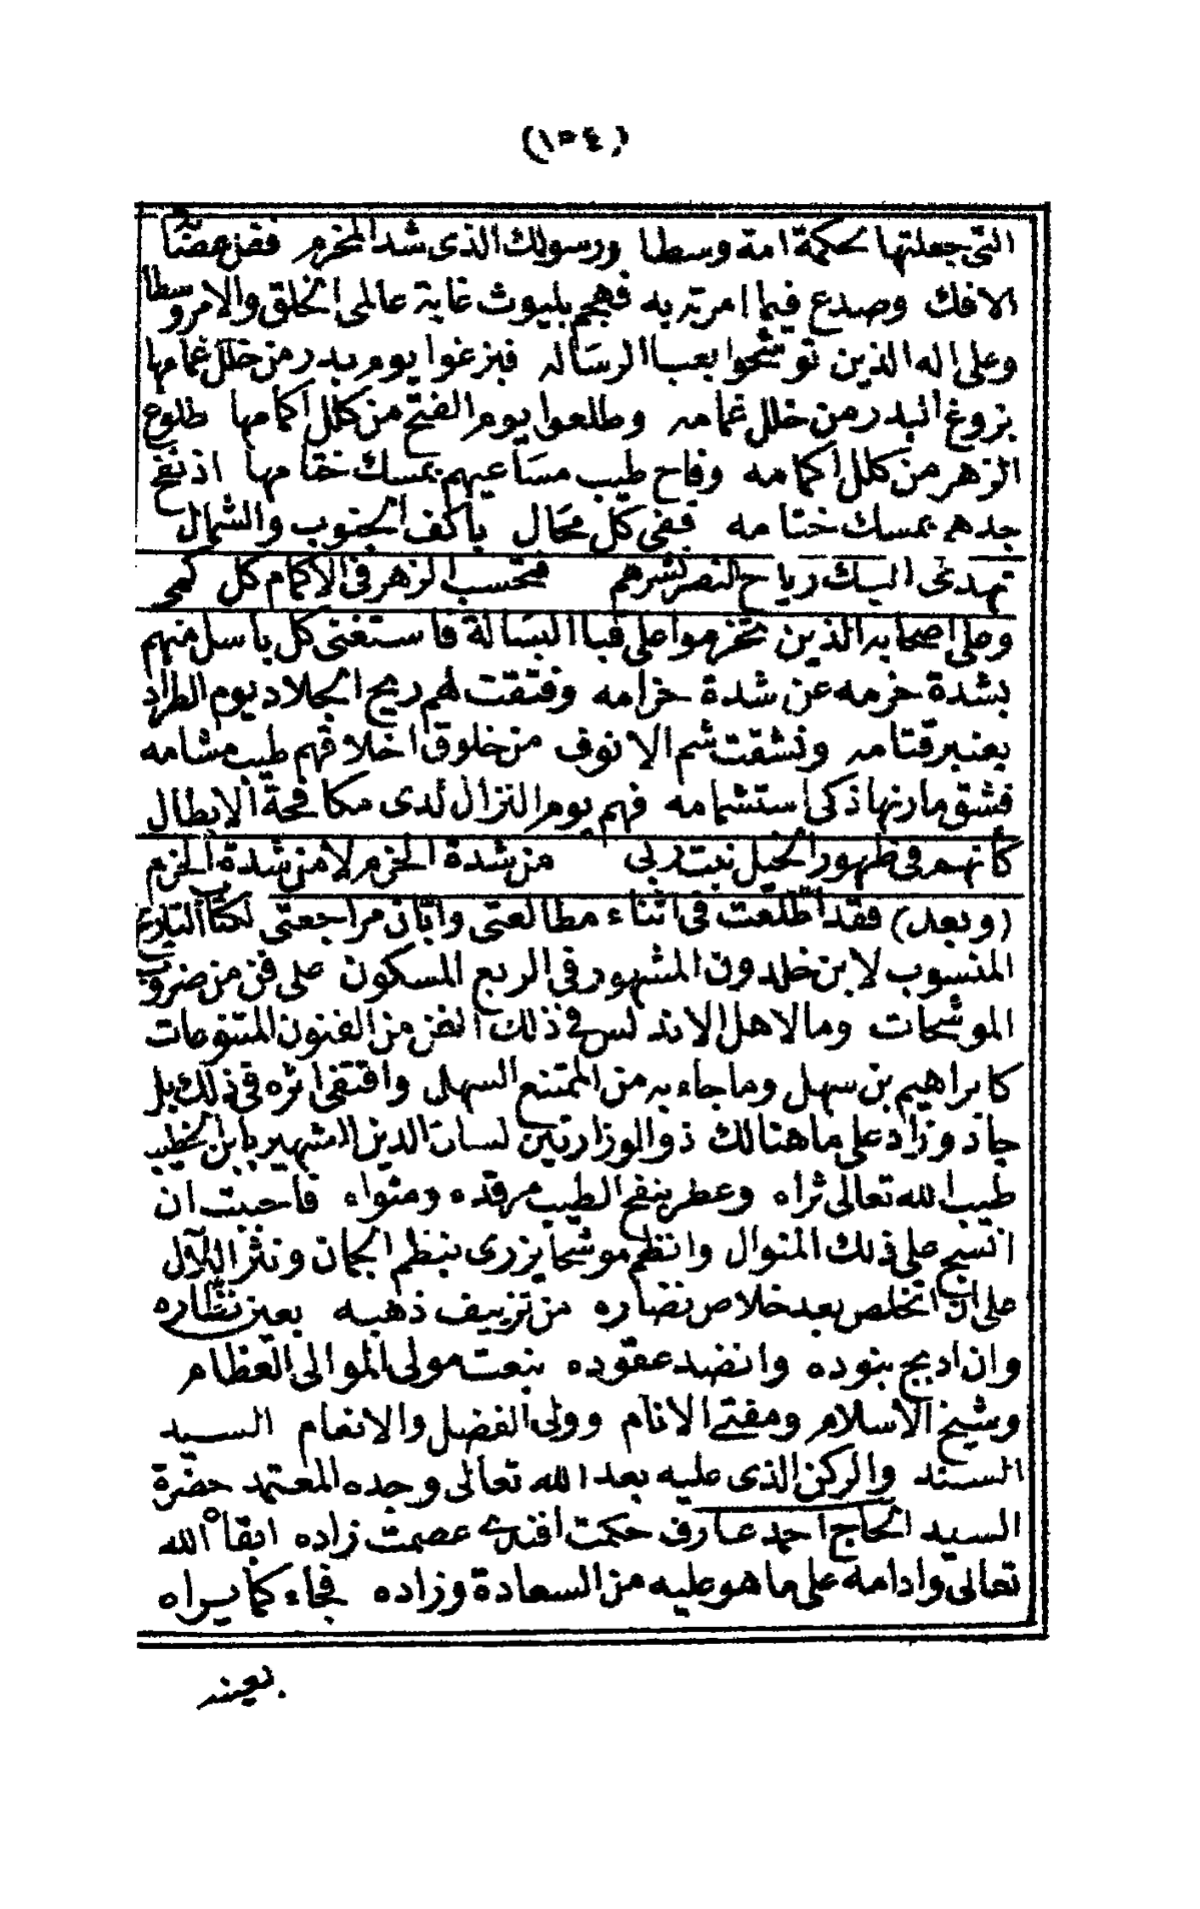 (١٥٤)
التى جعلتها لحكمة امة وسطا ورسولك الذى شد المحزم ففض عضّا
الافك وصدع فيما امرته به فهجم بليوث غابة عالمى الخلق والامر وسطا
وعلى اله الذين توشّحوا بعبا الرسَاله فبزغوا يوم بدر من خلل غمامها
بزوغ البدر من خلل غمامه وطلعوا يوم الفتح من كلل اكمامها طلوع
الزهر من كلل اكمامه وفاح طيب مسَاعيهم بمسك ختامها اذ نفح
جدهم بمسك ختامه ففى كل محَال باكف الجنوب والشمال
تهدى اليك رياح النصر نشرهم فتحسب الزهر فى الاكمام كل كمى
وعلى اصحابه الذين تحزموا على قبا البسَالة فاستغنى كل باسل منهم
بشدة حزمه عن شدة حزامه وفتقت لهم ريح الجلاد يوم الطراد
بعنبر قتامه ونشقت شم الانوف من خلوق اخلاقهم طيب مشامه
فشق مارنها ذكى استشمامه فهم يوم النزال لدى مكافحة الابطال
كأنهم فى ظهور الخيل نبت ربى من شدة الحزم لا من شدة الحزم
(وبعد) فقد اطلعت فى اثناء مطالعتى وابّان مراجعتى لكتاب التاريخ
المنسوب لابن خلدون المشهور فى الربع المسكون على فن من ضروب
الموشحات وما لاهل الاندلس فى ذلك الفن من الفنون المتنوعات
كابراهيم بن سهل وما جاء به من الممتنع السهل واقتفى اثره فى ذلك بل
جاذ وزاد على ما هنالك ذو الوزارتين لسان الدين الشهير بابن الخطيب
طيب الله تعالى ثراه وعطر بنفح الطيب مرقده ومثواه فاحببت ان
انسج على ذلك المنوال وانظم موشحا يزرى بنظم الجمان ونثر اللآل
على ان اتخلص بعد خلاص نضاره من تزييف ذهبيه بعين نظّاره
وان ادبج بنوده وانضد عقوده بنعت مولى الموالى العظام
وشيخ الاسلام ومفتى الانام وولى الفضل والانعام السيد
السند والركن الذى عليه بعد الله تعالى وحده المعتمد حضرة
السيد الحاج احمد عارف حكمت افندى عصمت زاده ابقاه الله
تعالى وادامه على ما هو عليه من السعادة وزاده فجاء كما يراه
بعينه